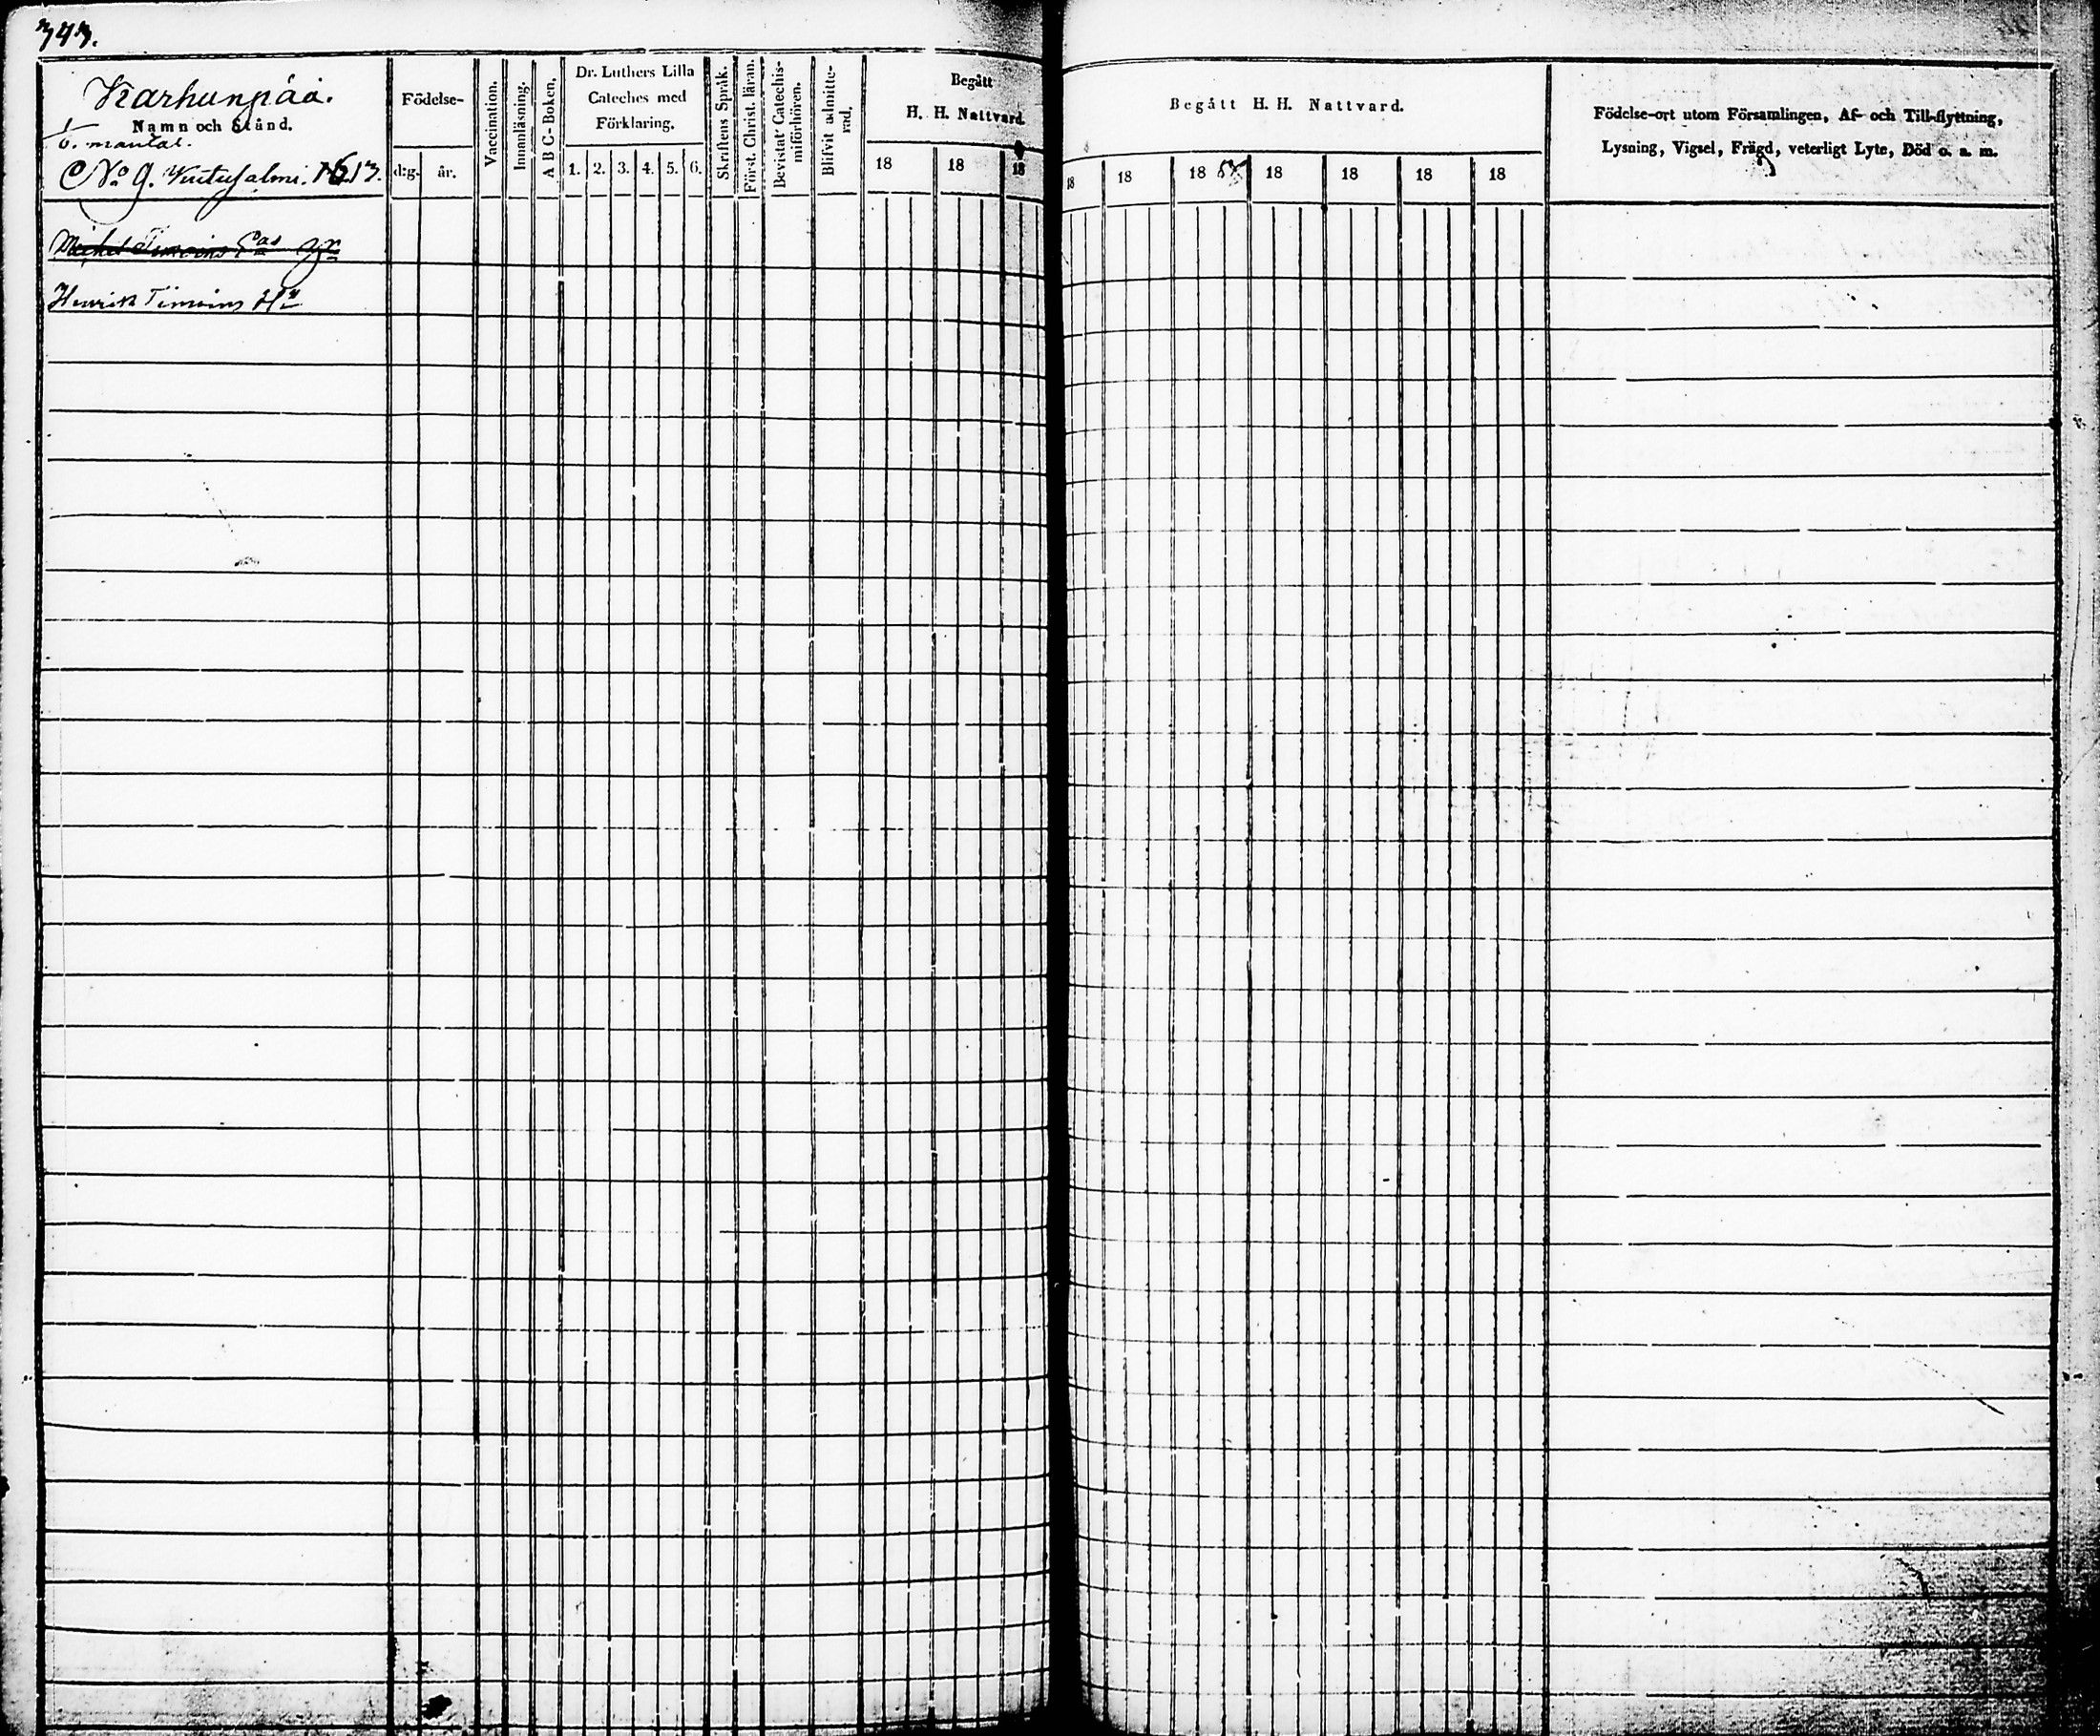 343.
Karhunpää.
Namn och Stånd.
1/6. mantal.
No 9. Wuitusalmi.
Födelse-
d:g. år.
Vaccination.
Innanläsning.
A B C-Boken.
Dr. Luthers Lilla
Cateches med
Förklaring.
1. 2. 3. 4. 5. 6.
Skriftens Språk.
Först. Christ. läran.
Bevistat Catechis-
miförhören.
Blifvit admitte-
rad.
Begått
H. H. Nattvard.
18 18 18
Begått H. H. Nattvard.
18 18 18 18 18 18 18
Födelse-ort utom Församlingen, Af- och Till-flyttning,
Lysning, Vigsel, Frägd, veterligt Lyte, Död o. a. m.
Michel
Henrik Timoins